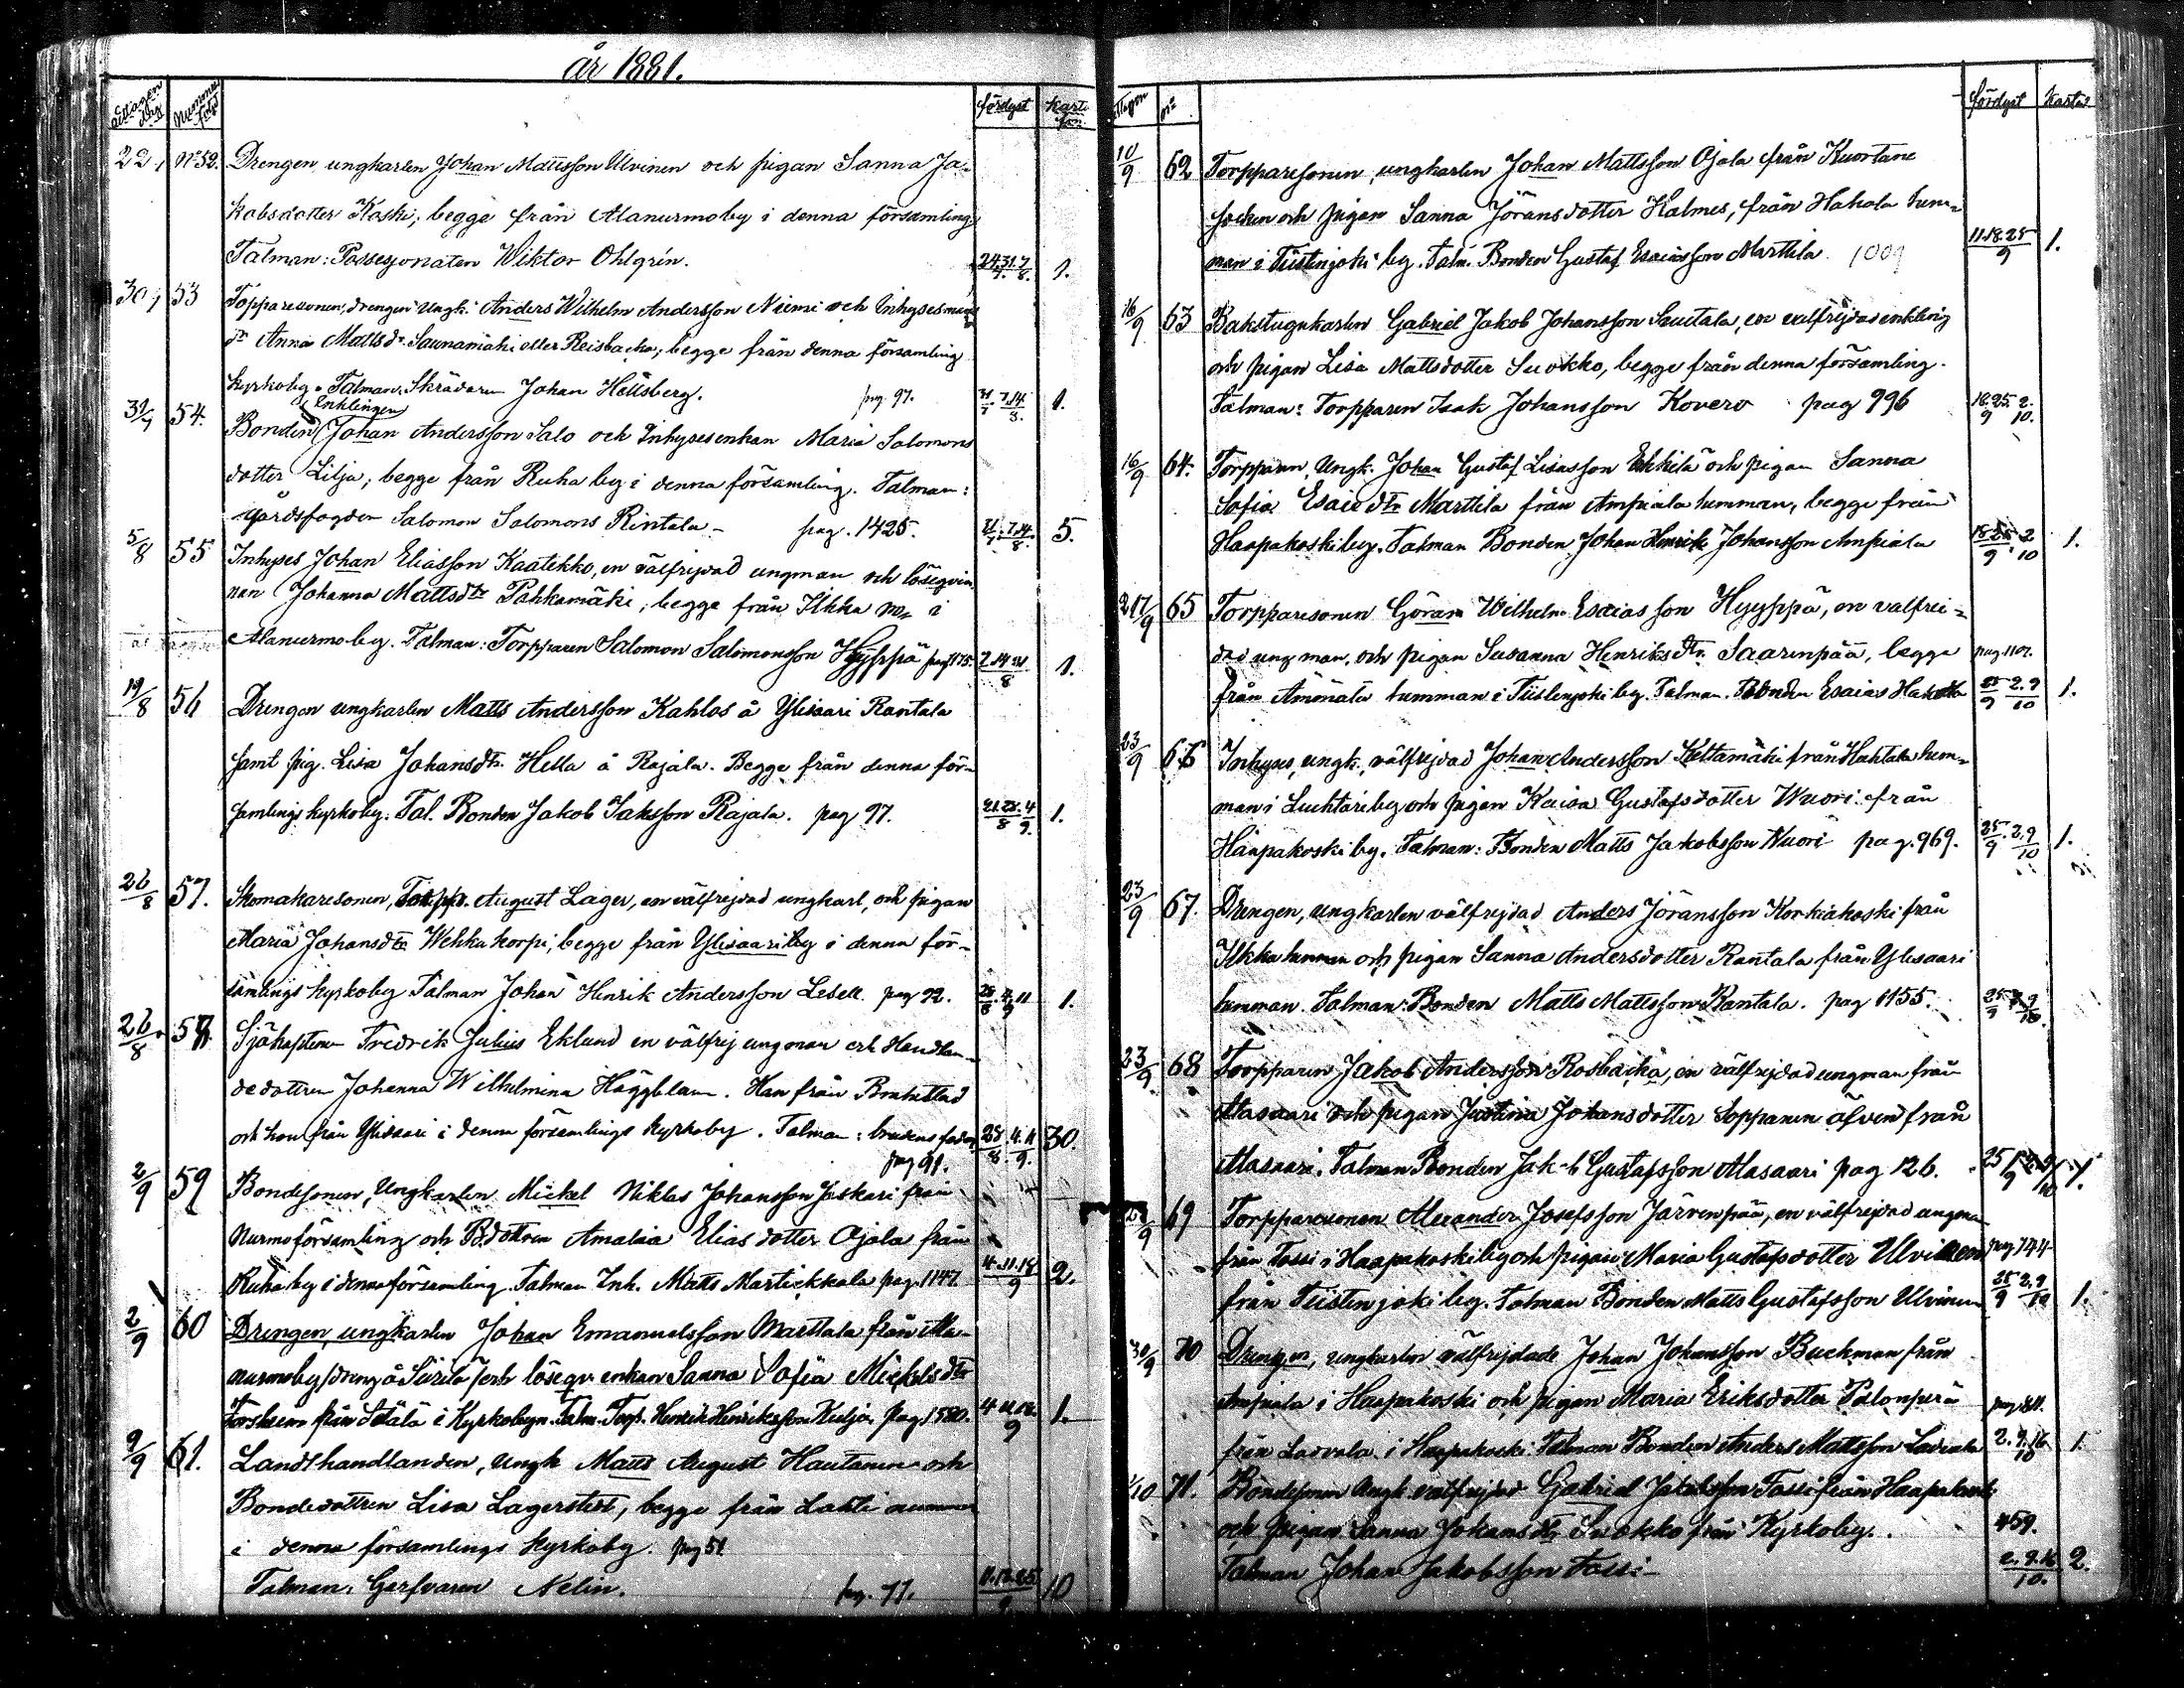 år 1881.
fördyst
22/7 No 52. Drengen ungkarlen Johan Mattsson Ulvinen och pigan Sanna Ja-
kobsdotter Koski, begge från Alanurmoby i denna församling
Talman: Possesjonaten Wiktor Ohlgrén. 24.31.7 1.
30/7 53 Topparesonen, drengen Ungk. Anders Wilhelm Andersson Niemi och Inhyses
dr Anna Matts dr. Saunamäki eller Reisbacka, begge från denna församling
kyrkoby. Talman: Skrädaren Johan Hellsberg. pag. 97. 31/7. 7.14/8. 1.
Enklingen
54. Bonden Johan Andersson Salo och Inhysesenkan Maria Salomons
dotter Lilja, begge från Ruha by i denna församling. Talman:
gårdsfogden Salomon Salomons Rintala - pag. 1425. 31/7. 7.14./8. 5.
5/8 55 Inhyses Johan Eliasson Kaatikko, en välfrejdad ungman och lösqvin
nan Johanna Mattsdtr Pahkamäki, begge från Ilkka i
Alanurmoby. Talman: Torpparen Salomon Salomonsson Hyyppä 7.14.21/8 1.
19/8 56 Drengen ungkarlen Matts Andersson Kahlos å Ylisaari Rantala
samt pig. Lisa Johansdtr. Hella å Rajala. Begge från denna för-
samlings kyrkoby. Tal. Bonden Jakob Jaksson Rajala. pag 97. 21.28./8 4/9. 1.
26/8 57. Skomakaresonen, August Lager, en välfrejdad ungkarl, och pigan
Maria Johansdtr Wehkakorpi, begge från Ylisaariby i denna för-
samlings kyrkoby Talman Johan Henrik Andersson Lesell. pag 92. 28/8. 4.11/9 1.
26/8 58. Sjökaptenen Fredrik Julius Eklund en välfrej ungman och Handlan-
dedottren Johanna Wilhelmina Häggblom. Han från Brahestad
och hon från Ylisaari i denna församlings kyrkoby. Talman: brudens fader 28/8. 4.11/9. 30.
pag 91.
2/9 59 Bondesonen, Ungkarlen Mickel Niklas Johansson Jaskari från
Nurmoförsamling och B.dottren Amalia Elias dotter Ojala från
Ruhaby i denna församling. Talman Inh. Matts Martickkala pag. 1147. 4.11.18/9 2.
2/9 60 Drengen, ungkarlen Johan Emanuelsson Marttala från Ala-
nurmoby/ dreng å / och lösqv. enkan Sanna Sofia Mickelsdtr
från i Kyrkobyn. Talm. Torp. Henrik Henriksson pag. 1580. 4.11.18./9 1.
9/9 61. Landthandlanden, Ungk Matts August Hautanen och
Bondedottren Lisa Lagerstedt, begge från Lahti
i denna församlings kyrkoby. pag 51
Talman. Garfvaren Nelin. pag. 77. 11.18.25/9 10
fördyst
10/9 62 Torpparesonen, ungkarlen Johan Mattsson Ojala från Kuortane
socken och pigan Sanna Jöransdotter Halmes, från Hakola hem-
man i Tiistenjoki by. Talm. Bonden Gustaf Esaiasson Marttila 1009 11.18.25/9 1.
16/9 63 Bakstugukarlen Gabriel Jakob Johansson, en välfrejdad enkling
och pigan Lisa Mattsdotter Suokko, begge från denna församling.
Talman: Torpparen Isak Johansson Kovero pag 996 18.25/9 2./10.
16/9 64. Torpparen, Ungk. Johan Gustaf Lisasson Erkkilä och pigan Sanna
Sofia Esaiedtr Marttila från Ampiala hemman, begge från
Haapakoskiby. Talman Bonden Johan Henrik Johansson Ampiala 18.25/9. 2/10 1.
65 Torpparesonen Göran Wilhelm Esaiasson Hyyppä, en valfrei-
dad ungman, och pigan Susanna Henriksdtr Saarenpää, begge pag 1107.
från hemman i Tiistenjoki by. Talman. Bonden Esaias Hakola 25/9 2.9/10 1.
23/9 66 Inhyses, ungk., välfrejdad Johan Andersson Kettamäki från Huhtala hem-
man i Luchtariby och pigan Kaisa Gustafsdotter Wuori från
Haapakoski by. Talman: Bonden Matts Jakobsson Wuori pag. 969. 25/9. 2.9/10 1.
23/9 67. Drengen, ungkarlen välfrejdad Anders Jöransson Korkiakoski från
Ilkka hemman och pigan Sanna Andersdotter Rantala från Ylisaari
hemman. Talman: Bonden Matts Mattsson Rantala. pag 1155. 25/9 2.9/10
23/9 68 Torpparen Jakob Andersson Rosbacka, en välfrejdad ungman från
Alasaari och pigan Justina Johansdotter Soppanen äfven från
Alasaari. Talman Bonden Jakob Gustafsson Alasaari pag 126. 1.
69 Torpparesonen Alexander Josefsson Järvenpää, en välfrejdad ungman
från Tassi i Haapakoskiby och pigan Maria Gustafsdotter Ulvinen pag 744
från Tiistenjoki by. Talman Bonden Matts Gustafsson Ulvinen 25/9 2.9/10 1.
30/9 70 Drengen, ungkarlen välfrejdade Johan Johansson Buckman från
Ampiala i Haapakoski och pigan Maria Eriksdotter Palonperä
från Lasvala i Haapakoski. Talman Bonden Anders Mattsson 2.9.16/10 1.
1/10 71. Bondesonen Ungk. välfrejdad Gabriel Jakobsson Tassi från Haapakoski
och pigan Sanna Johansdtr Suokko från Kyrkoby. 459.
Talman Johan Jakobsson Tassi 2.9.16/10. 2.